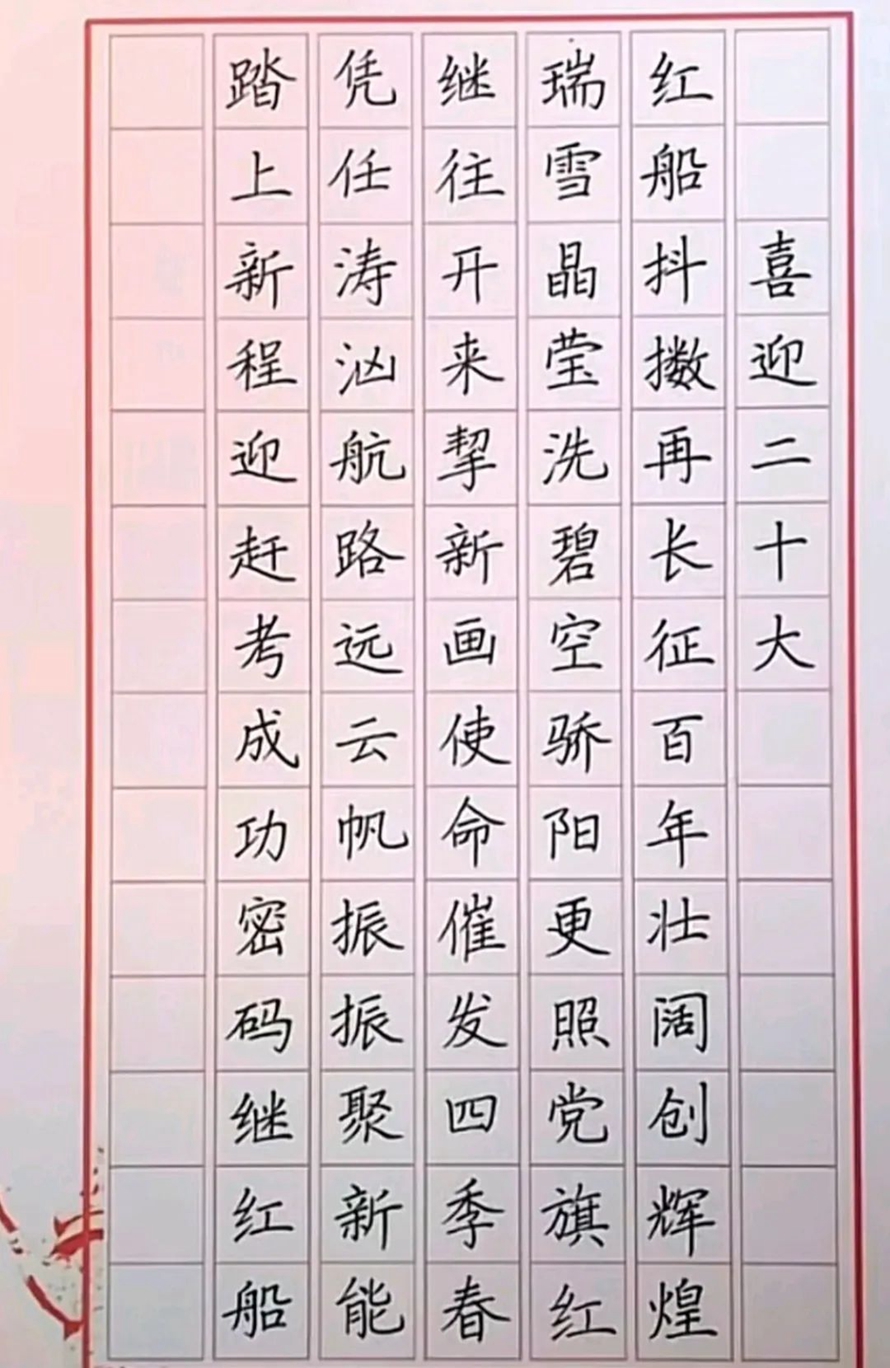 喜迎二十大
红船抖擞再长征百年壮阔创辉煌
瑞雪晶莹洗碧空骄阳更照党旗红
继往开来挈新画使命催发四季春
凭任涛汹航路远云帆振振聚新能
踏上新程迎赶考成功密码继红船